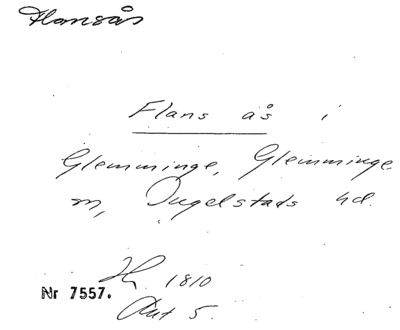 Flansås
Flans ås i
Glemminge, Glemminge
m, Ingelstads hd.
1810
Nr 7557.
Akt 5.